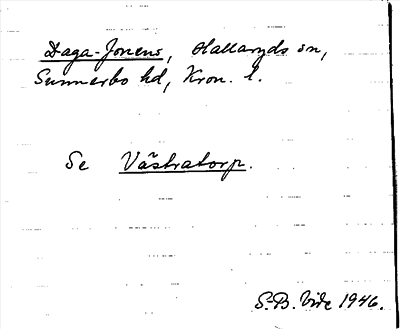 Daga-Jonens, Hallaryds sn,
Sunnerbo hd, Kron. l.
Se Västratorp.
S.-B. Vide 1946.